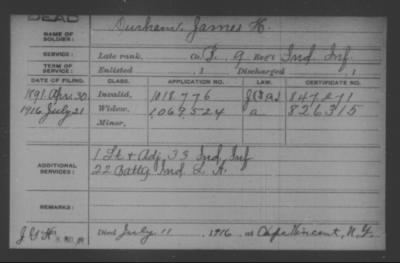 DEAD
NAME OF SOLDIER: Durham, James H.
SERVICE: Late rank, Co. F, 9 Reg't Ind. Inf.
TERM OF SERVICE: Enlisted , 1 Discharged , 1
DATE OF FILING. CLASS. APPLICATION NO. LAW. CERTIFICATE NO.
1891 Apr. 30 Invalid, 1018.776 847.271
1916 July 21 Widow, 1,069,524 a 826315
Minor,
ADDITIONAL SERVICES: 1 Lt & Adj. 33 Ind. Inf
22 Batty Ind. L. A.
REMARKS:
Died July 11 1916, at Cape Vincent, N.Y.